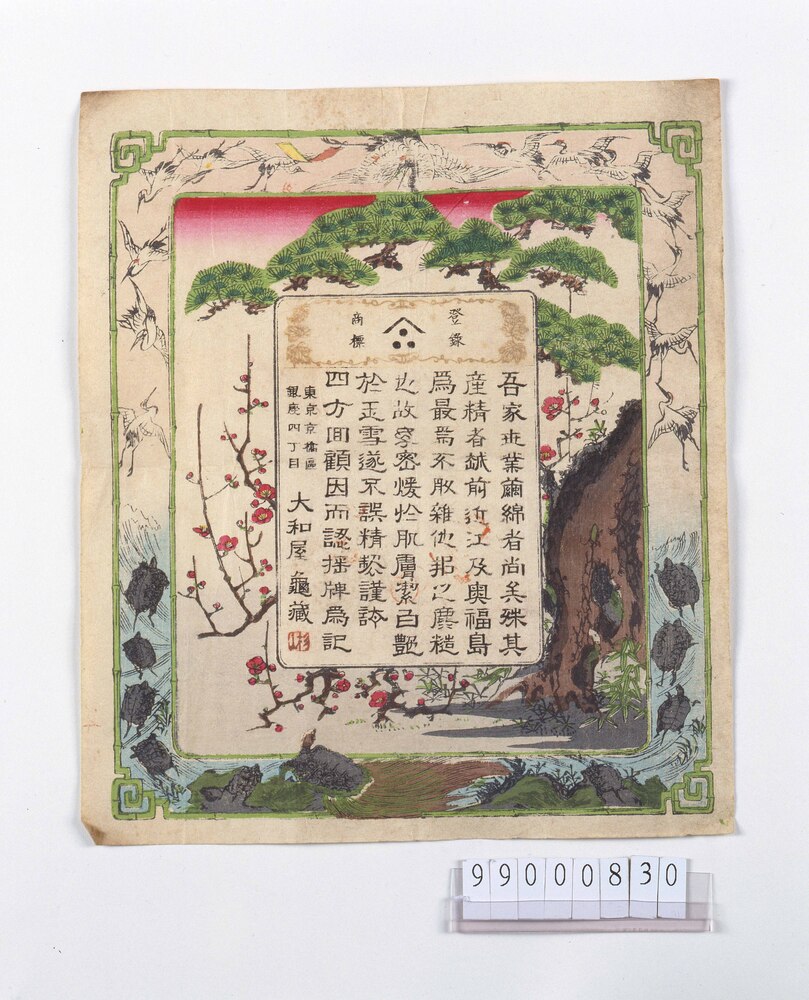 登錄
商標
吾家世業繭綿者尚美殊其
産精者越前近江及奥福島
爲最焉不敢雜他邦之麤糙
也故密煖於肌膚潔白艶
於玉雪遂不誤精製謹
四方回顧因而認牌爲記
東京京橋區
銀座四丁目
大和屋 龜藏
99000830